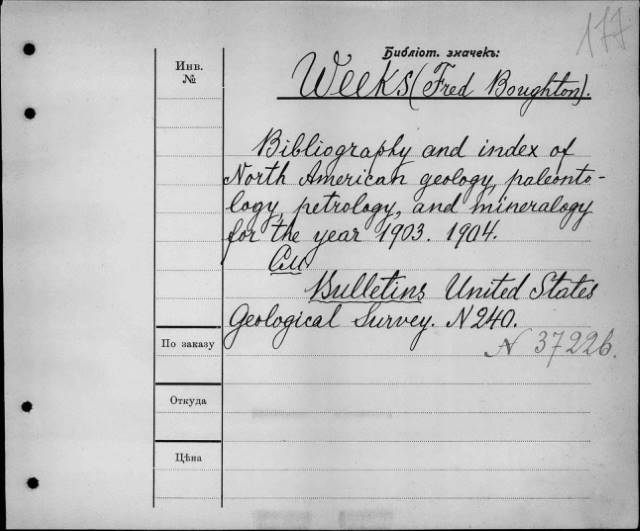 177
Библіот. значекъ:
Инв.
№
Weeks (Fred Boughton).
Bibliography and index of
North American geology, paleonto-
logy, petrology, and mineralogy
for the year 1903. 1904.
См.
Bulletins United States
Geological Survey. N 240.
По заказу
N 37226.
Откуда
Цѣна